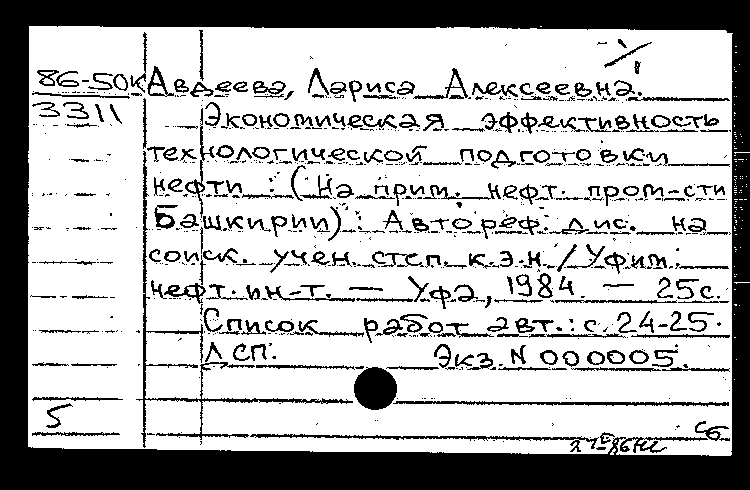 86-50к Авдеева, Лариса Алексеевна.
3311 Экономическая эффективность
технологической подготовки
нефти : (На прим. нефт. пром-сти
Башкирии) : Автореф. дис. на
соиск. учен. степ. к.э.н. / Уфим.
нефт. ин-т. — Уфа, 1984. — 25с.
Список работ авт.: с. 24-25.
ДСП. Экз. N 000005.
5